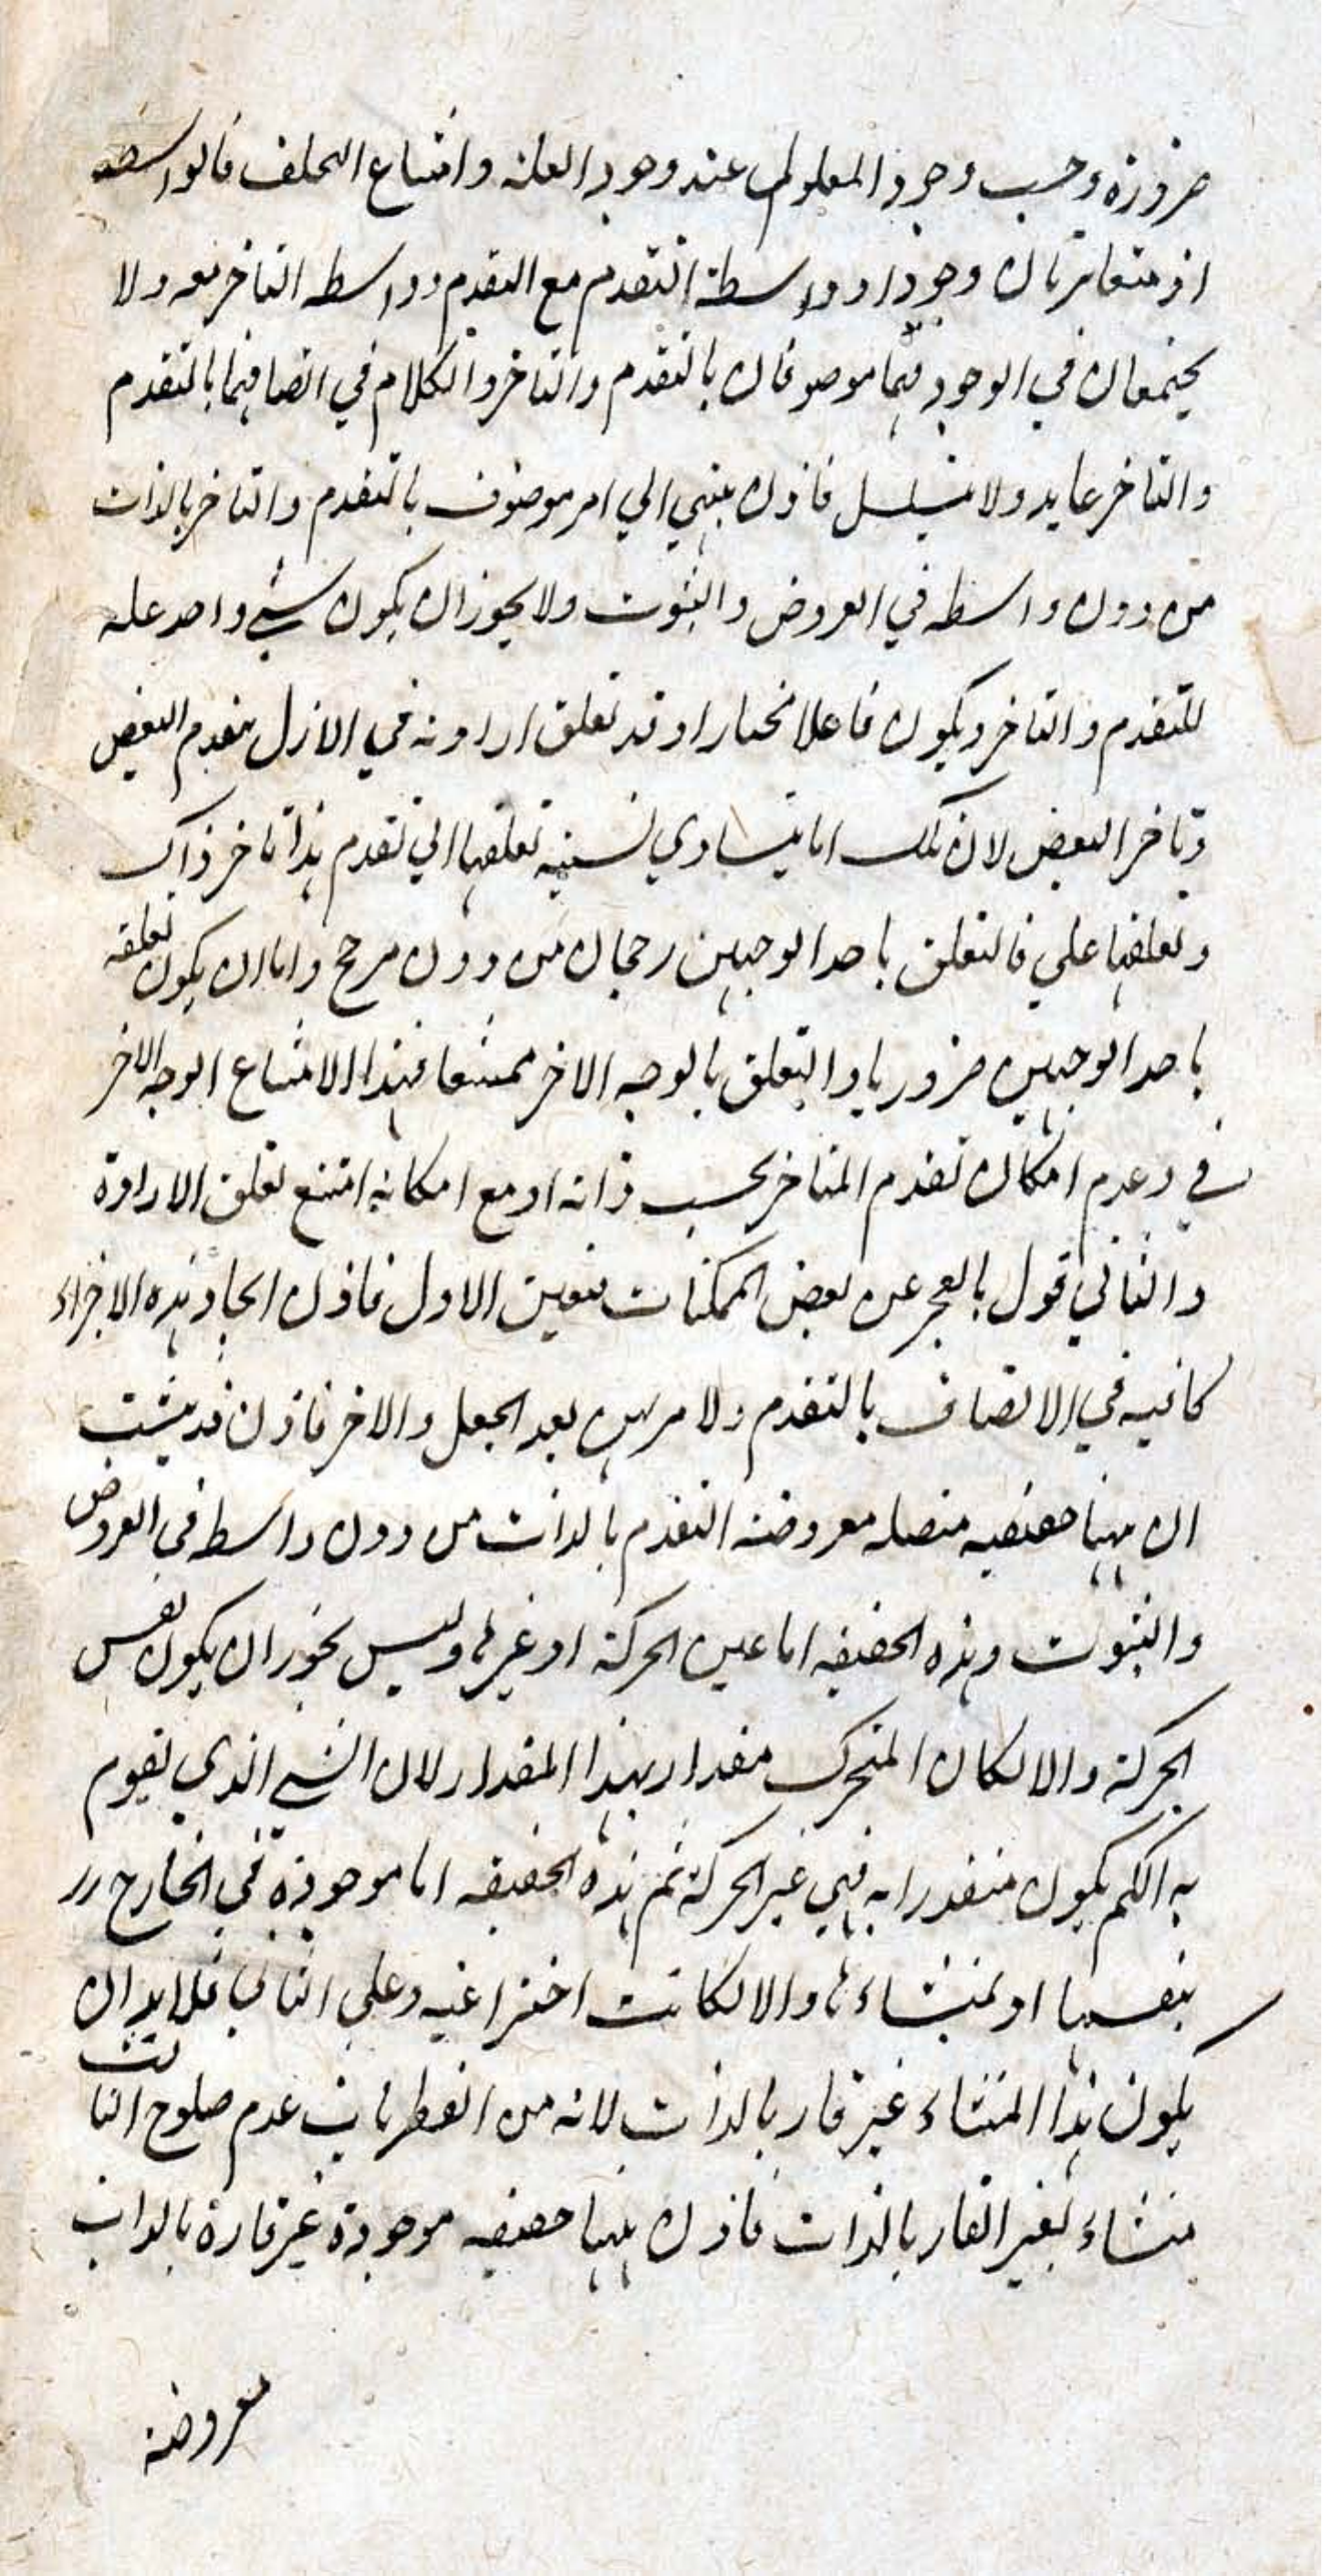 ضرورة وجب وجود المعلول عند وجود العلة وامتناع التخلف فالواسطة
اذ متغايرتان وجودا وواسطة التقدم مع التقدم وواسطه التاخر معه ولا
يجتمعان في الوجود فهما موصوفان بالتقدم والتاخر والكلام في اتصافهما بالتقدم
والتاخر عايد ولا يتسلسل فاذن ينتهي الي امر موصوف بالتقدم والتاخر بالذات
من دون واسطه في العروض والثبوت ولا يجوز ان يكون شيء واحد علة
للتقدم والتاخر ويكون فاعلا مختارا وقد تعلق ارادته في الازل بتقدم البعض
وتاخر البعض لان تلك اما يتساوي نسبة تعلقها الي تقدم هذا تاخر ذاك
وتعلقها علي فالتعلق باحد الوجهين رجحان من دون مرجح واما ان يكون تعلقه
باحد الوجهين ضروريا والتعلق بالوجه الاخر ممتنعا فهذا الامتناع الوجه الاخر
في وعدم امكان تقدم المتاخر بحسب ذاته او مع امكانه امتنع تعلق الارادة
والثاني قول بالعجز عن بعض الممكنات فتعين الاول فاذن ايجاد هذه الاجزاء
كافيه في الاتصاف بالتقدم ولا مرهون بعد الجعل والاخر فاذن قد يثبت
ان ههنا حقيقيه متصله معروضة التقدم بالذات من دون واسطه في العروض
والثبوت وهذه الحقيقه اما عين الحركة او غيرها وليس يجوز ان يكون نفس
الحركة والا لكان المتحرك مقدار بهذا المقدار لان الشي الذي يقوم
به الكم يكون متقدرا به فهي غير الحركة ثم هذه الحقيقه اما موجودة في الخارج
بنفسها او بمنشاءها والا لكانت اختراعيه وعلي الثاني فلابد ان
يكون هذا المنشاء غير قار بالذات لانه من الفطريات عدم صلوح الثابت
منشاء لغير القار بالذات فاذن ههنا حقيقه موجودة غير قارة بالذات
معروضة